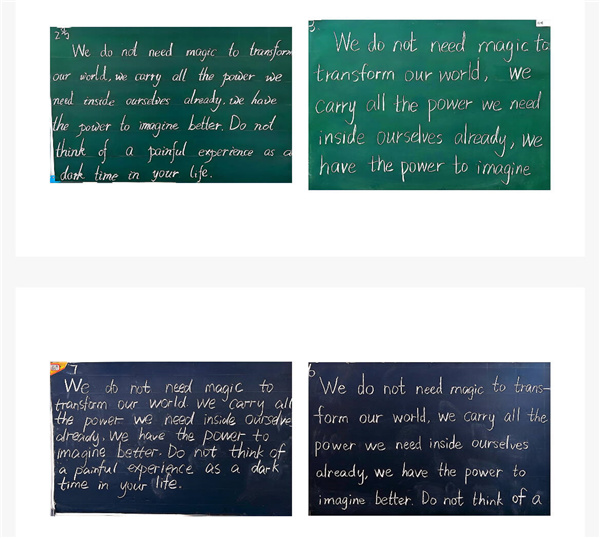 We do not need magic to transform
our world, we carry all the power we
need inside ourselves already, we have
the power to imagine better. Do not
think of a painful experience as a
dark time in your life.
We do not need magic to
transform our world, we
carry all the power we need
inside ourselves already, we
have the power to imagine
7
We do not need magic to
transform our world. We carry all
the power we need inside ourselve
already. We have the power to
imagine better. Do not think of
a painful experience as a dark
time in your life.
6
We do not need magic to trans-
form our world, we carry all the
power we need inside ourselves
already, we have the power to
imagine better. Do not think of a